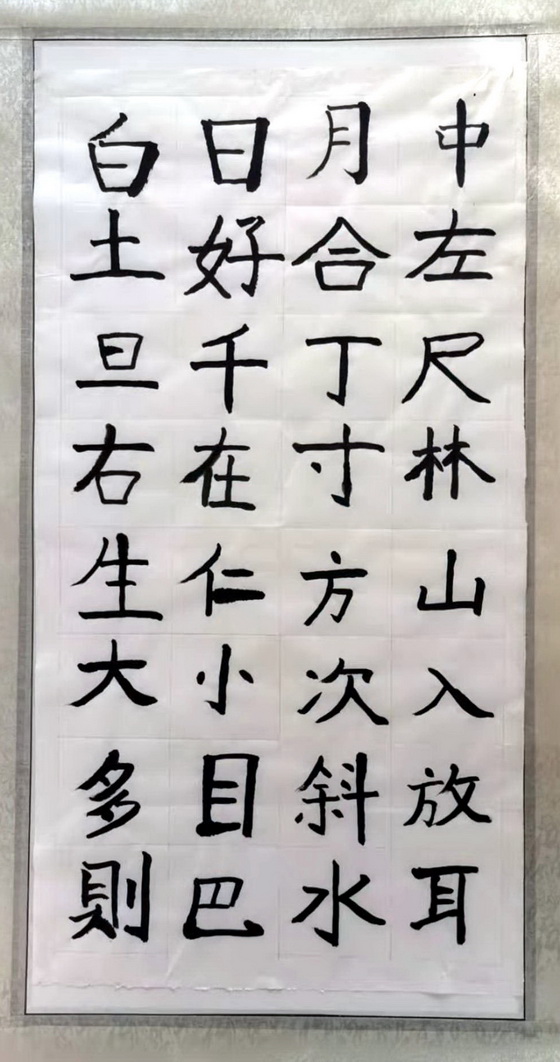 中左尺林山入放耳
月合丁寸方次斜水
日好千在仁小目巴
白土旦右生大多則